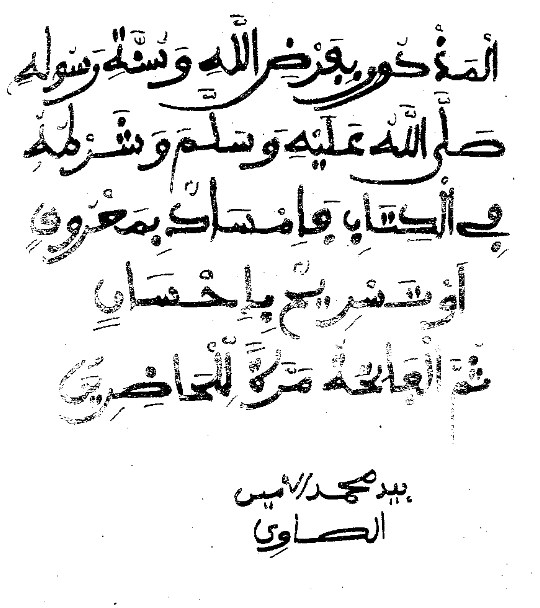 الْمَذْكُورِ بِفَرْضِ اللَّهِ وَسُنَّةِ رَسُولِهِ
صَلَّى اللَّهُ عَلَيْهِ وَسَلَّمَ وَشَرْطِهِ
فِي الْكِتَابِ فَإِمْسَاكٌ بِمَعْرُوفٍ
أَوْ تَسْرِيحٌ بِإِحْسَانٍ
ثُمَّ الْفَاتِحَةُ مَرَّةً لِلْحَاضِرِينَ
بيد محمد الأمين